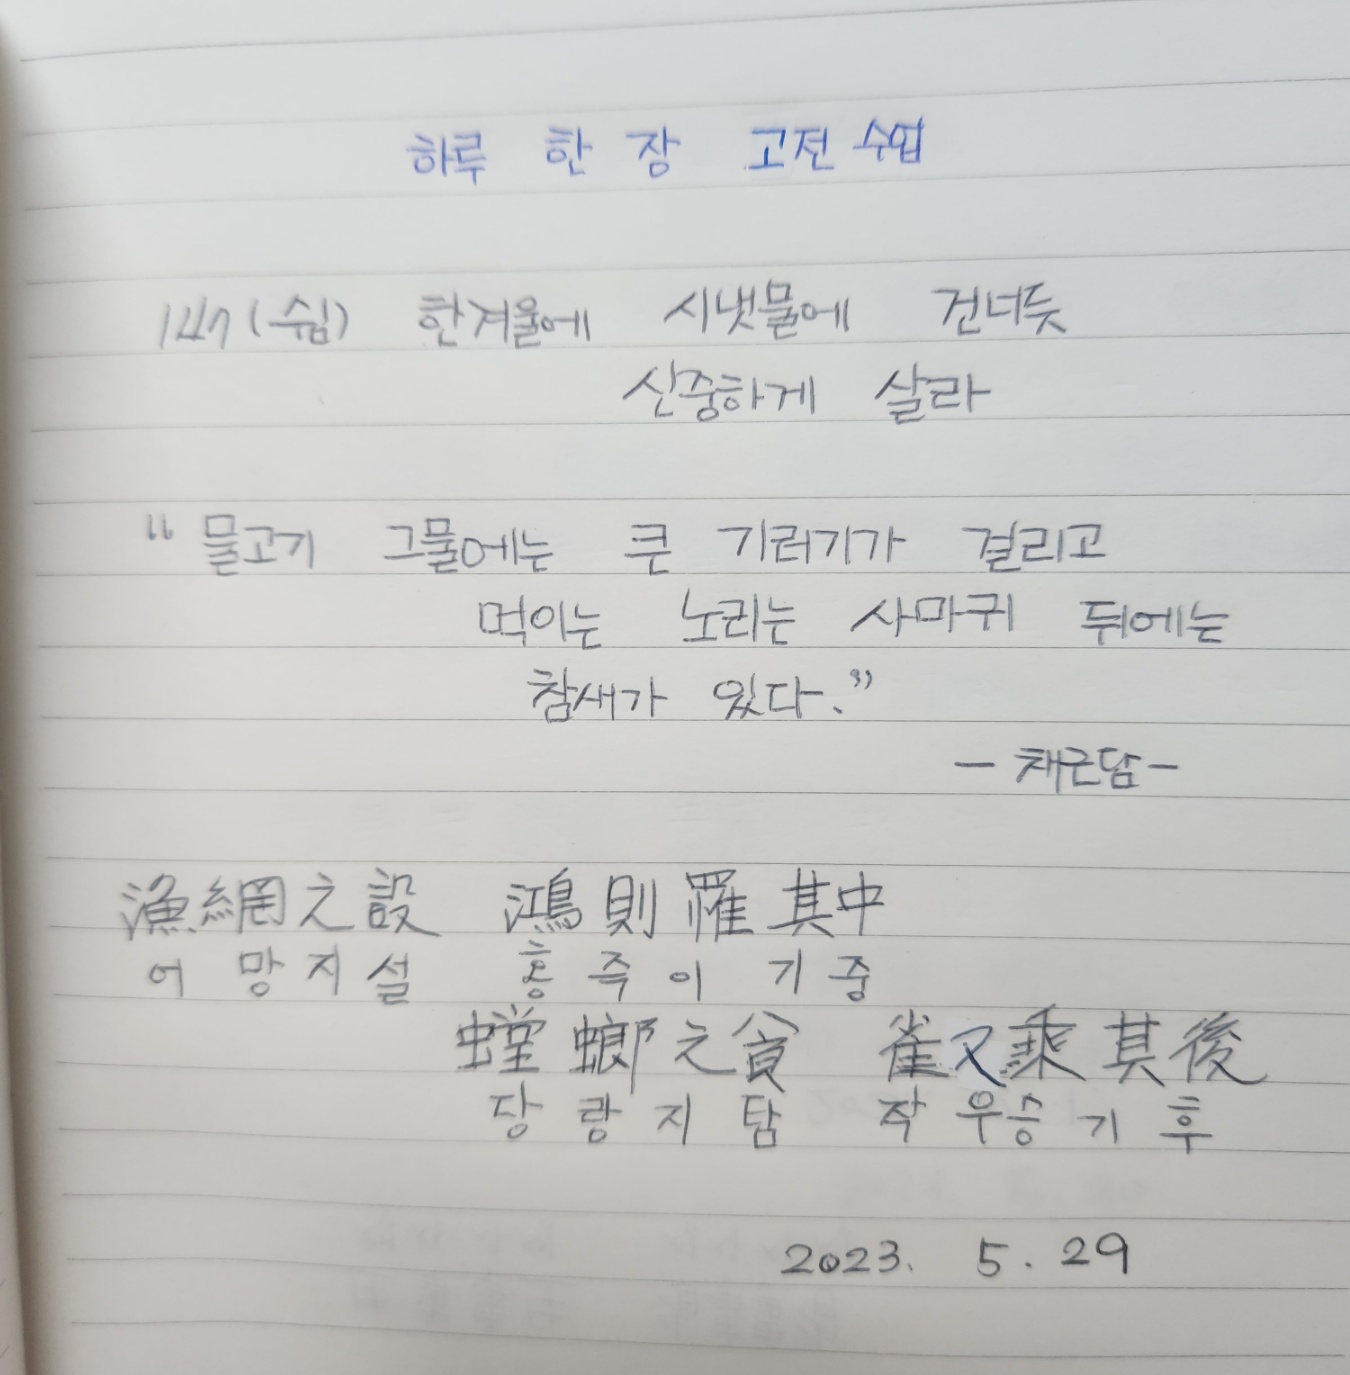 하루 한 장 고전 수업
147(쉼) 한겨울에 시냇물에 건너듯
신중하게 살라
“물고기 그물에는 큰 기러기가 걸리고
먹이는 노리는 사마귀 뒤에는
참새가 있다.”
- 채근담 -
漁網之設 鴻則罹其中
어망지설 홍즉이기중
螳螂之貪 雀又乘其後
당랑지탐 작우승기후
2023. 5. 29